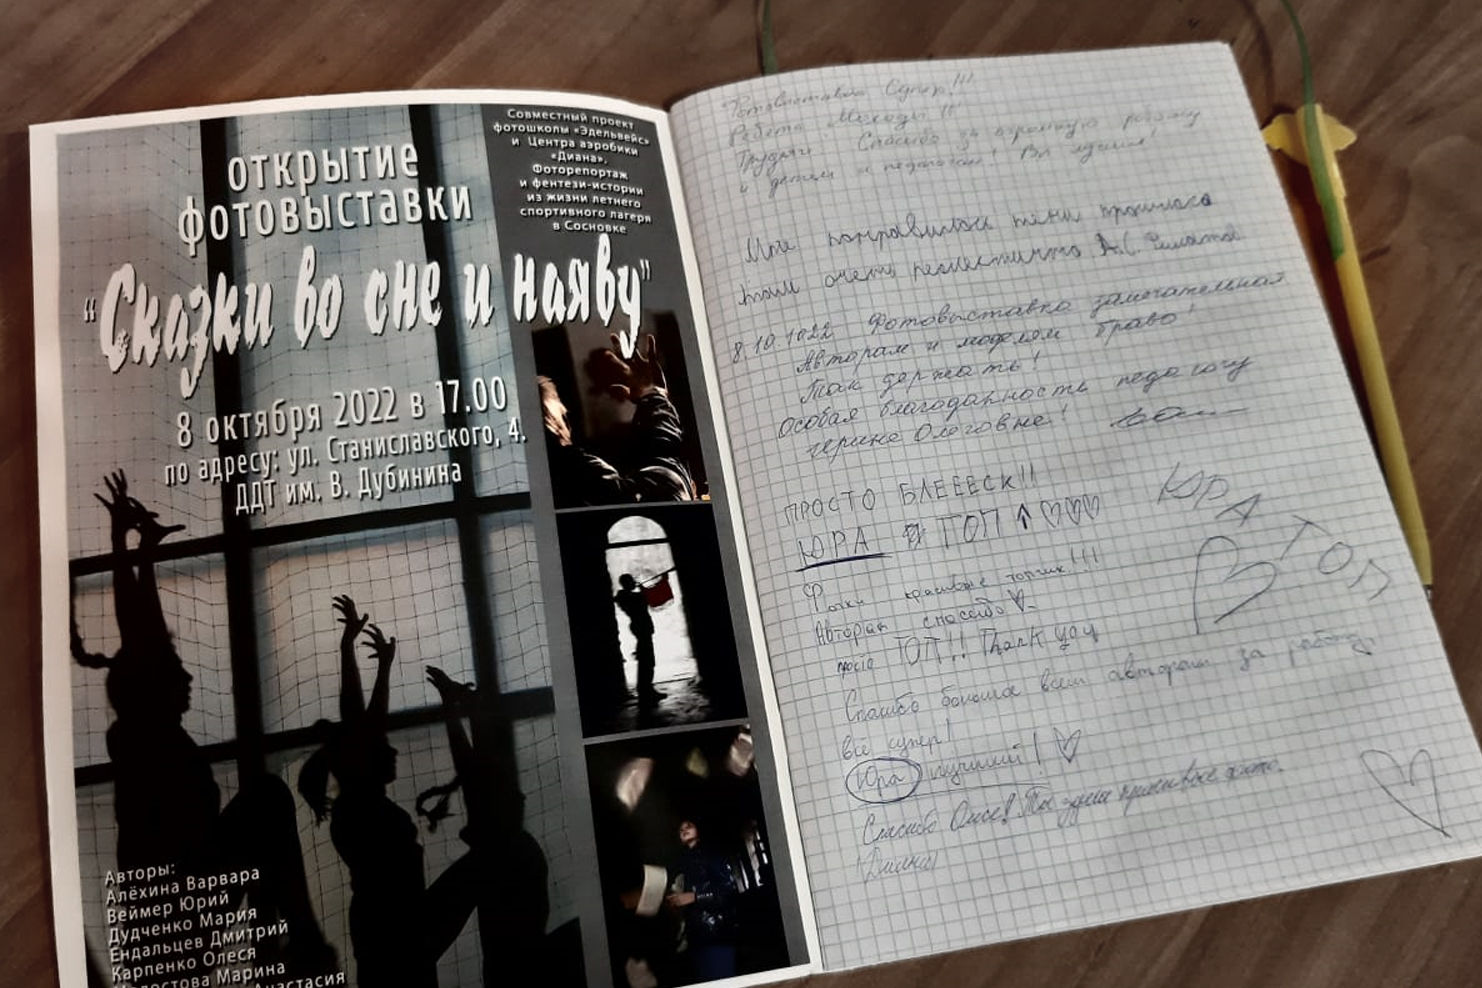 открытие
фотовыставки
"Сказки во сне и наяву"
8 октября 2022 в 17.00
по адресу: ул. Станиславского, 4.
ДДТ им. В. Дубинина
Совместный проект
фотошколы «Эдельвейс»
и Центра аэробики
«Диана».
Фоторепортаж
и фентези-истории
из жизни летнего
спортивного лагеря
в Сосновке
Авторы:
Алёхина Варвара
Веймер Юрий
Дудченко Мария
Ендальцев Дмитрий
Карпенко Олеся
Марина
Фотовыставка Супер!!!
Ребята Молодцы!!!
Спасибо за огромную работу
и детям и педагогам! Вы лучшие!
Мне понравились тени
очень реалистично
8.10.1022 Фотовыставка замечательная
Авторам и моделям браво!
Так держать!
Особая благодарность педагогу
Олеговне!
ПРОСТО БЛЕЕЕСК!!
ЮРА ТОП ↑ ♡♡♡
ЮРА
ТОП
Фотки !!!
Авторам спасибо ♡
ТОП!! Thank you
Спасибо большое всем авторам за работу,
всё супер!
Юра лучший! ♡
Спасибо Олесе!